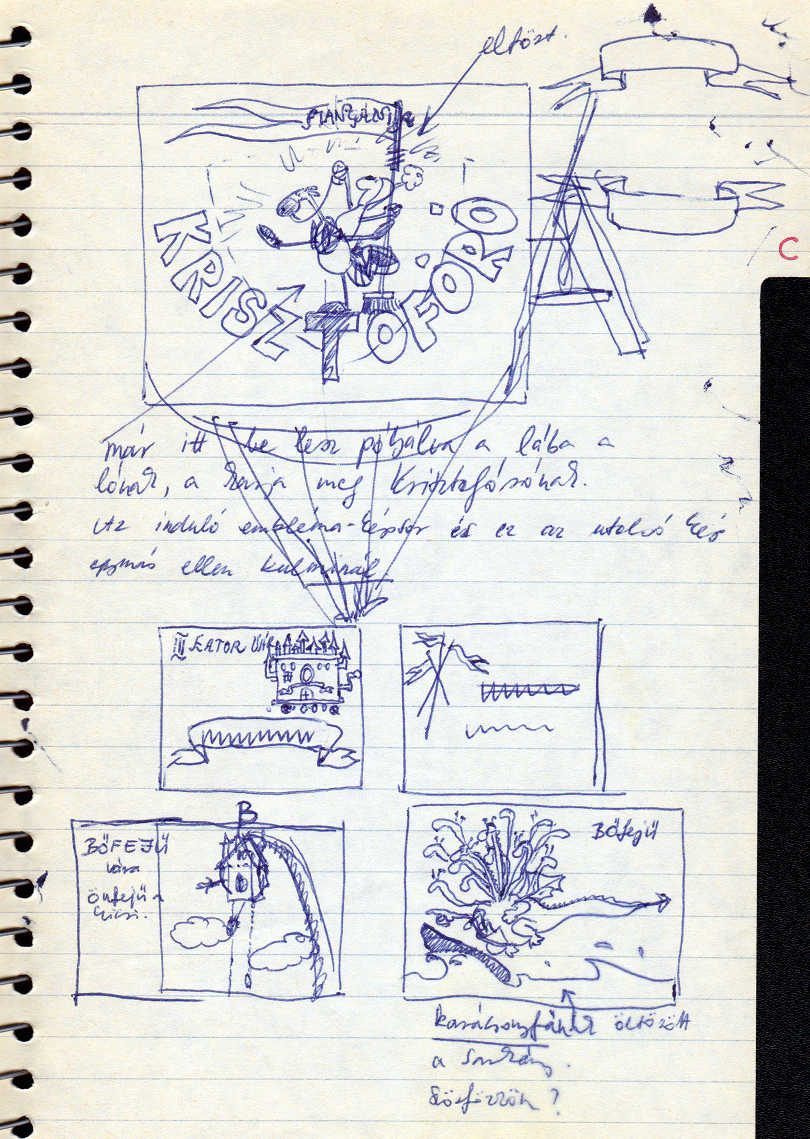 eltört.
C
KRISZTOFÓRÓ
már itt be lesz pótólva a lába a
lónak, a karja meg Krisztofórónak.
Az induló embléma-képsor és ez az utolsó kép
egymás ellen kulminál
III KATOR
B
BŐFEJŰ
vára
Önfejű a
kicsi.
Bőfejű
karácsonyfának öltözött
a Sárkány.
?